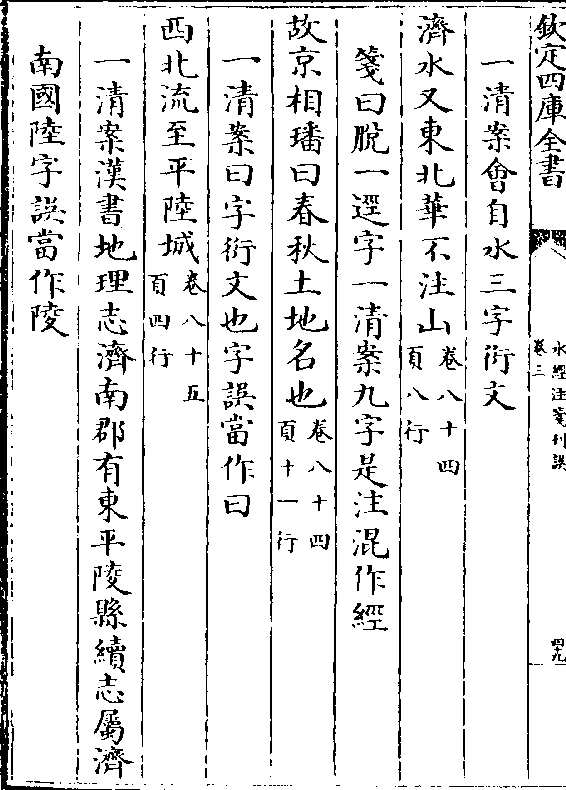 欽定四庫全書
水經注箋刊誤
卷三
四九
一清案會自水三字衍文
濟水又東北華不注山卷八十四頁八行
箋曰脫一逕字一清案九字是注混作經
故京相璠曰春秋土地名也卷八十四頁十一行
一清案曰字衍文也字誤當作曰
西北流至平陸城卷八十五頁四行
一清案漢書地理志濟南郡有東平陵縣續志屬濟
南國陸字誤當作陵